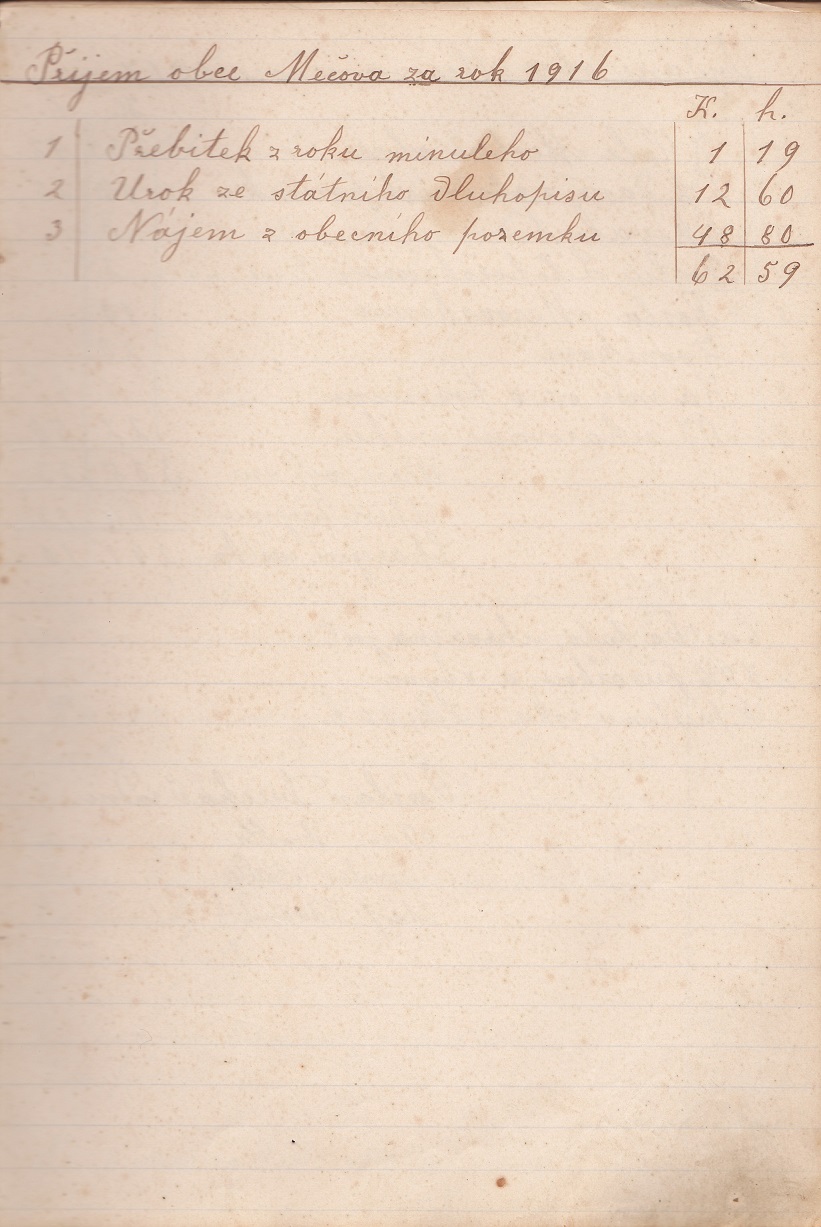 Přijem obce Mečova za rok 1916
K. h.
1 Přebitek z roku minuleho 1 19
2 Urok ze státního dluhopisu 12 60
3 Nájem z obecního pozemku 48 80
62 59